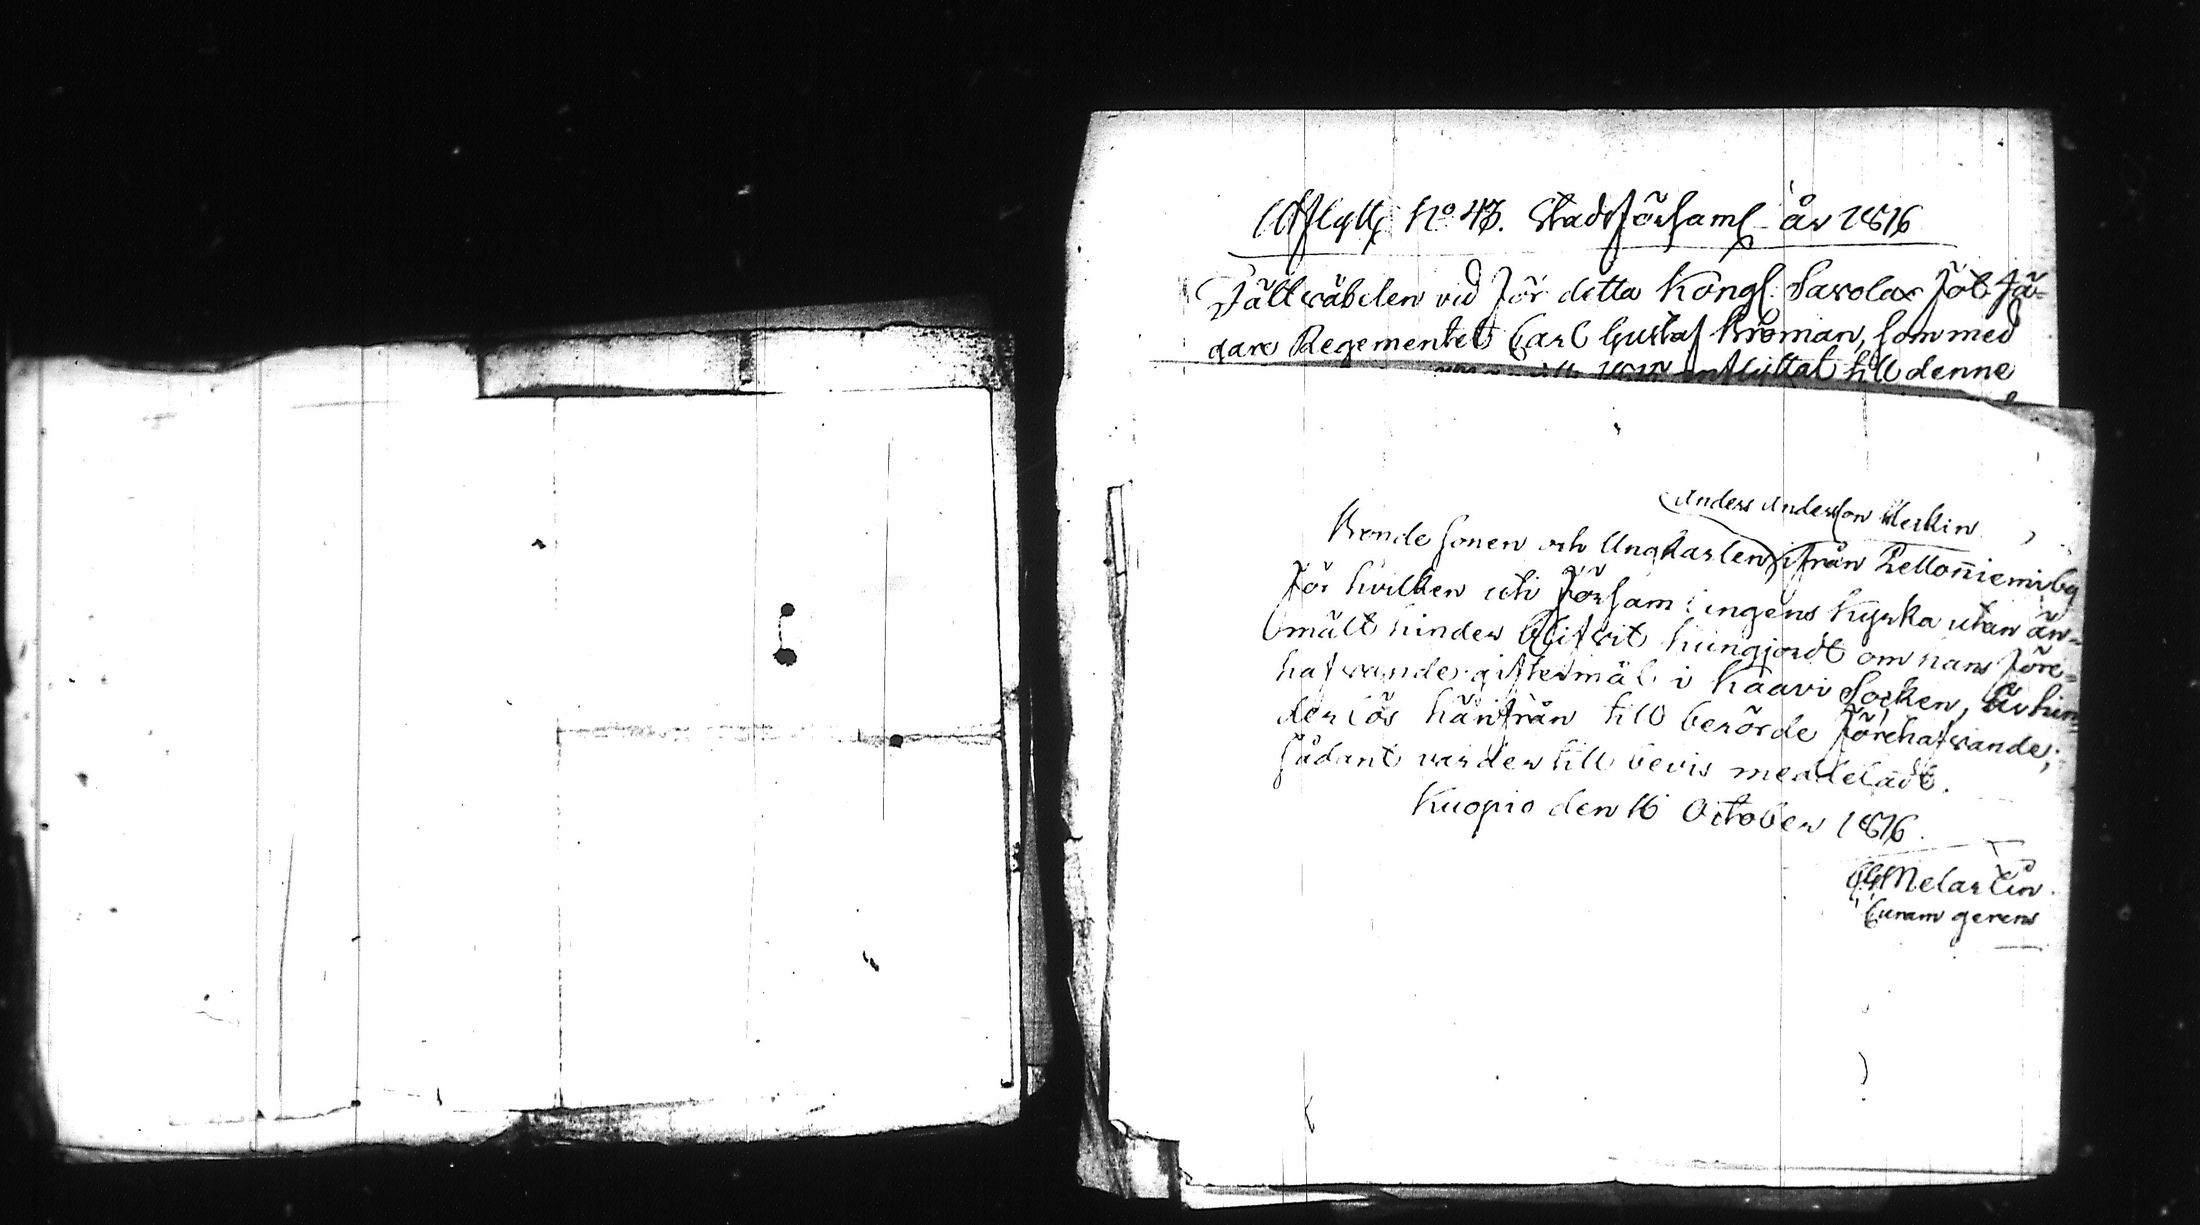 Utflytt. No 43. Stadsförsaml. år 1816
Fältväbelen vid för detta Kongl. Savolax fot Jä-
gare Regementet Carl Gustaf Kroman, som med
utflyttat till denne
Anders Andersson Heskin
Bonde sonen och Ungkarlen ifrån Pellonniemi by
för hvilken uti Församlingens kyrka utan än-
mält hinder blifvit kungjordt om hans före-
hafvande giftermål i Kaavi Socken, är hin-
derlös härifrån till berörde förehafvande;
sådant varder till bevis meddeladt.
Kuopio den 16 October 1816.
Melartin
Curam gerens